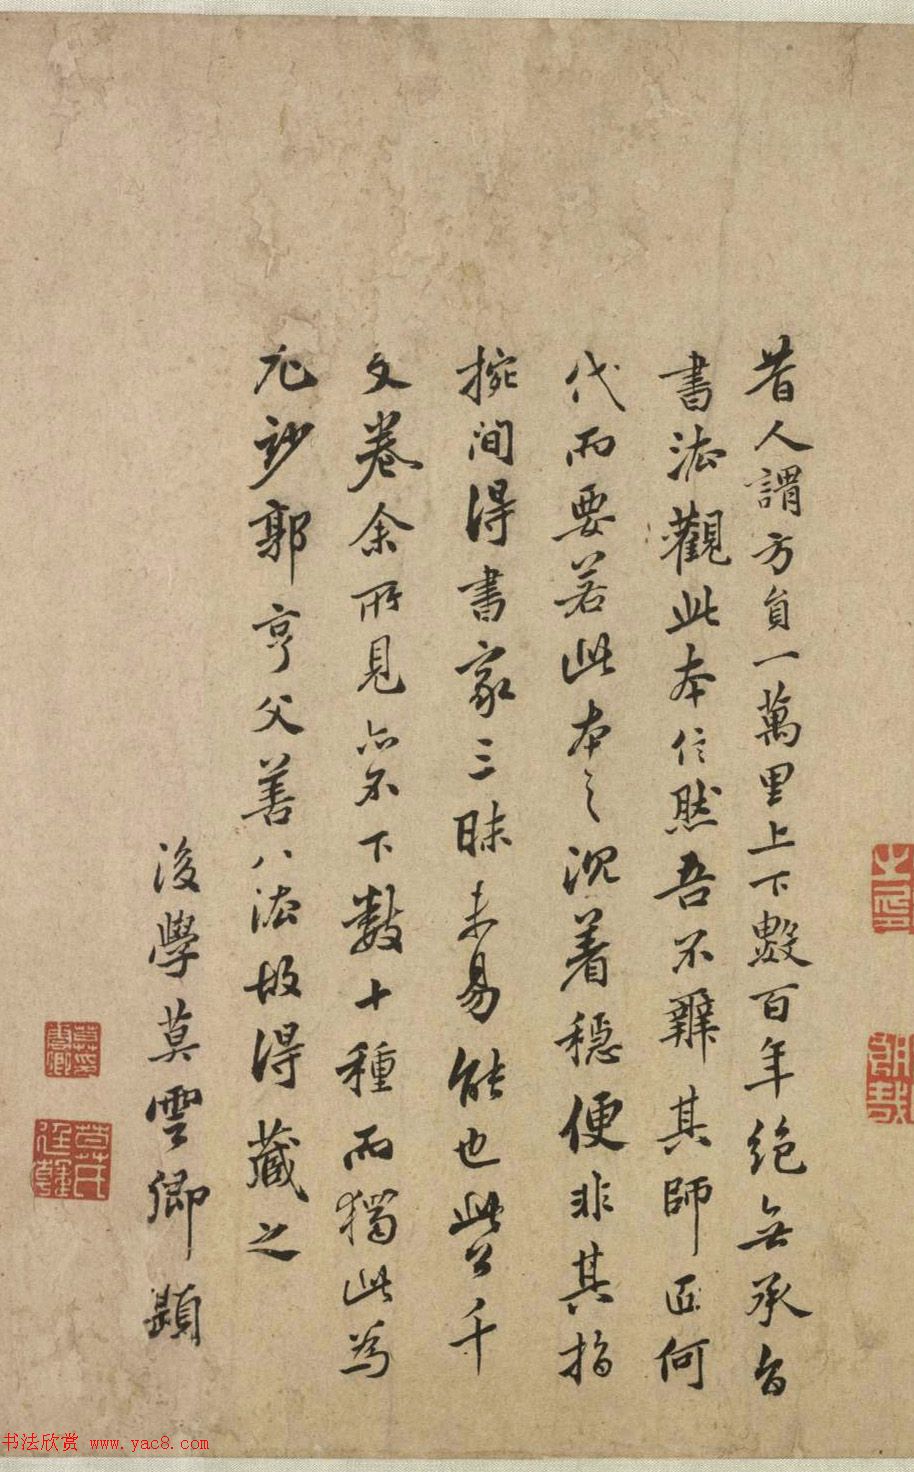 昔人謂方員一萬里上下數百年絕無承旨
書法觀此本信然吾不辨其師匠何
代而要若此本之沉着穩便非其指
捥間得書家三昧未易能也此公千
文卷余所見亦不下數十種而獨此為
尤妙郭亨父善八法故得藏之
後學莫雲卿題
莫氏廷韓
書法欣赏 www.yac8.com